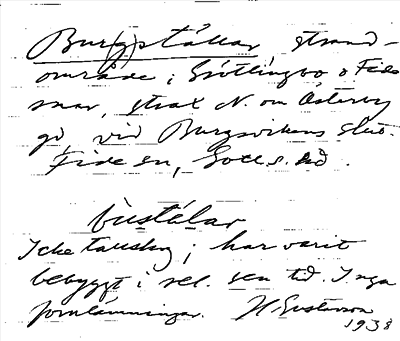 Bur(g)ställar strand-
område i Grötlingbo o Fide
snar, strax N. om Österby
gd, vid Burgsvikens slut.
Fide sn, Gotl. s. hd.
bùstálar
Icke har varit
bebyggt i sen tid. Inga
fornlämningar. H. Gustavson
1938